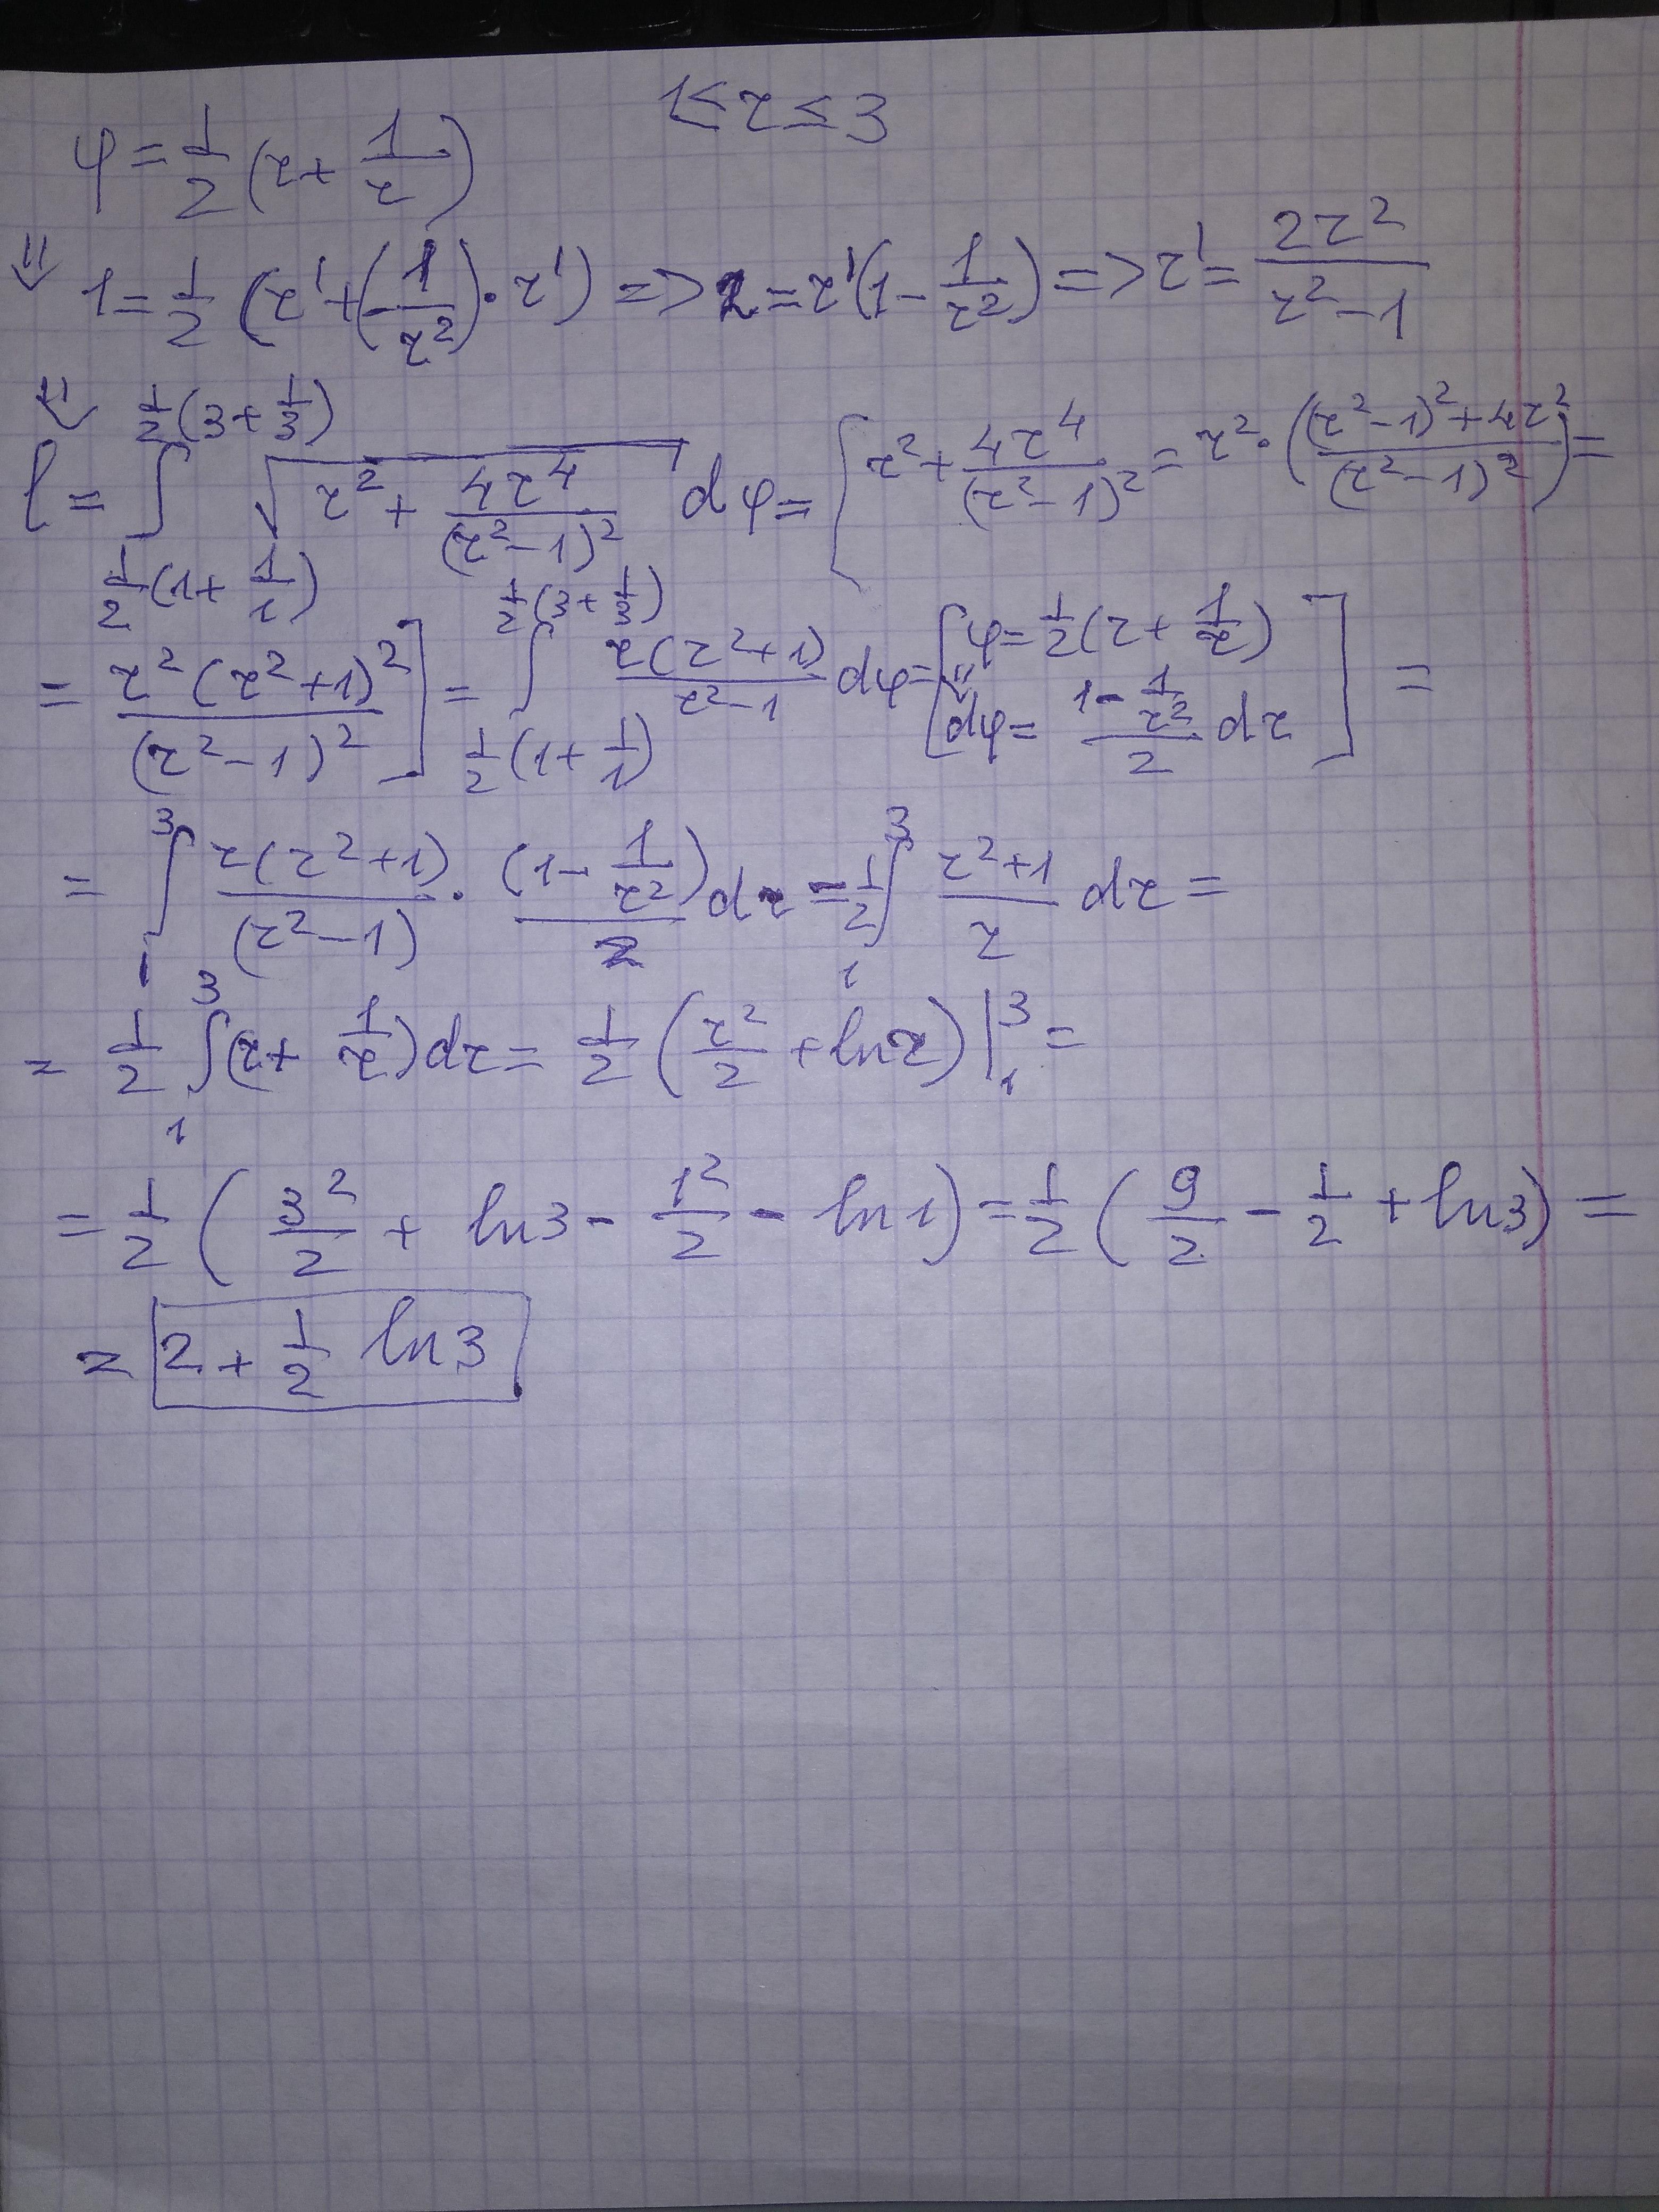 φ = 1/2 (r + 1/r)    1 ≤ r ≤ 3
⇓ 1 = 1/2 (r' + (-1/r²)·r') => 2 = r'(1 - 1/r²) => r' = 2r²/(r² - 1)
⇓ l = ∫_{1/2(1+1/1)}^{1/2(3+1/3)} √(r² + 4r⁴/(r²-1)²) dφ = [r² + 4r⁴/(r²-1)² = r²·((r²-1)²+4r²)/(r²-1)²) =
= r²(r²+1)²/(r²-1)²] = ∫_{1/2(1+1/1)}^{1/2(3+1/3)} r(r²+1)/(r²-1) dφ = [φ = 1/2(r + 1/r) ⇓ dφ = (1 - 1/r²)/2 dr] =
= ∫_1^3 r(r²+1)/(r²-1) · (1 - 1/r²)/2 dr = 1/2 ∫_1^3 (r²+1)/r dr =
= 1/2 ∫_1^3 (r + 1/r) dr = 1/2 (r²/2 + ln r) |_1^3 =
= 1/2 (3²/2 + ln3 - 1²/2 - ln1) = 1/2 (9/2 - 1/2 + ln3) =
= 2 + 1/2 ln3